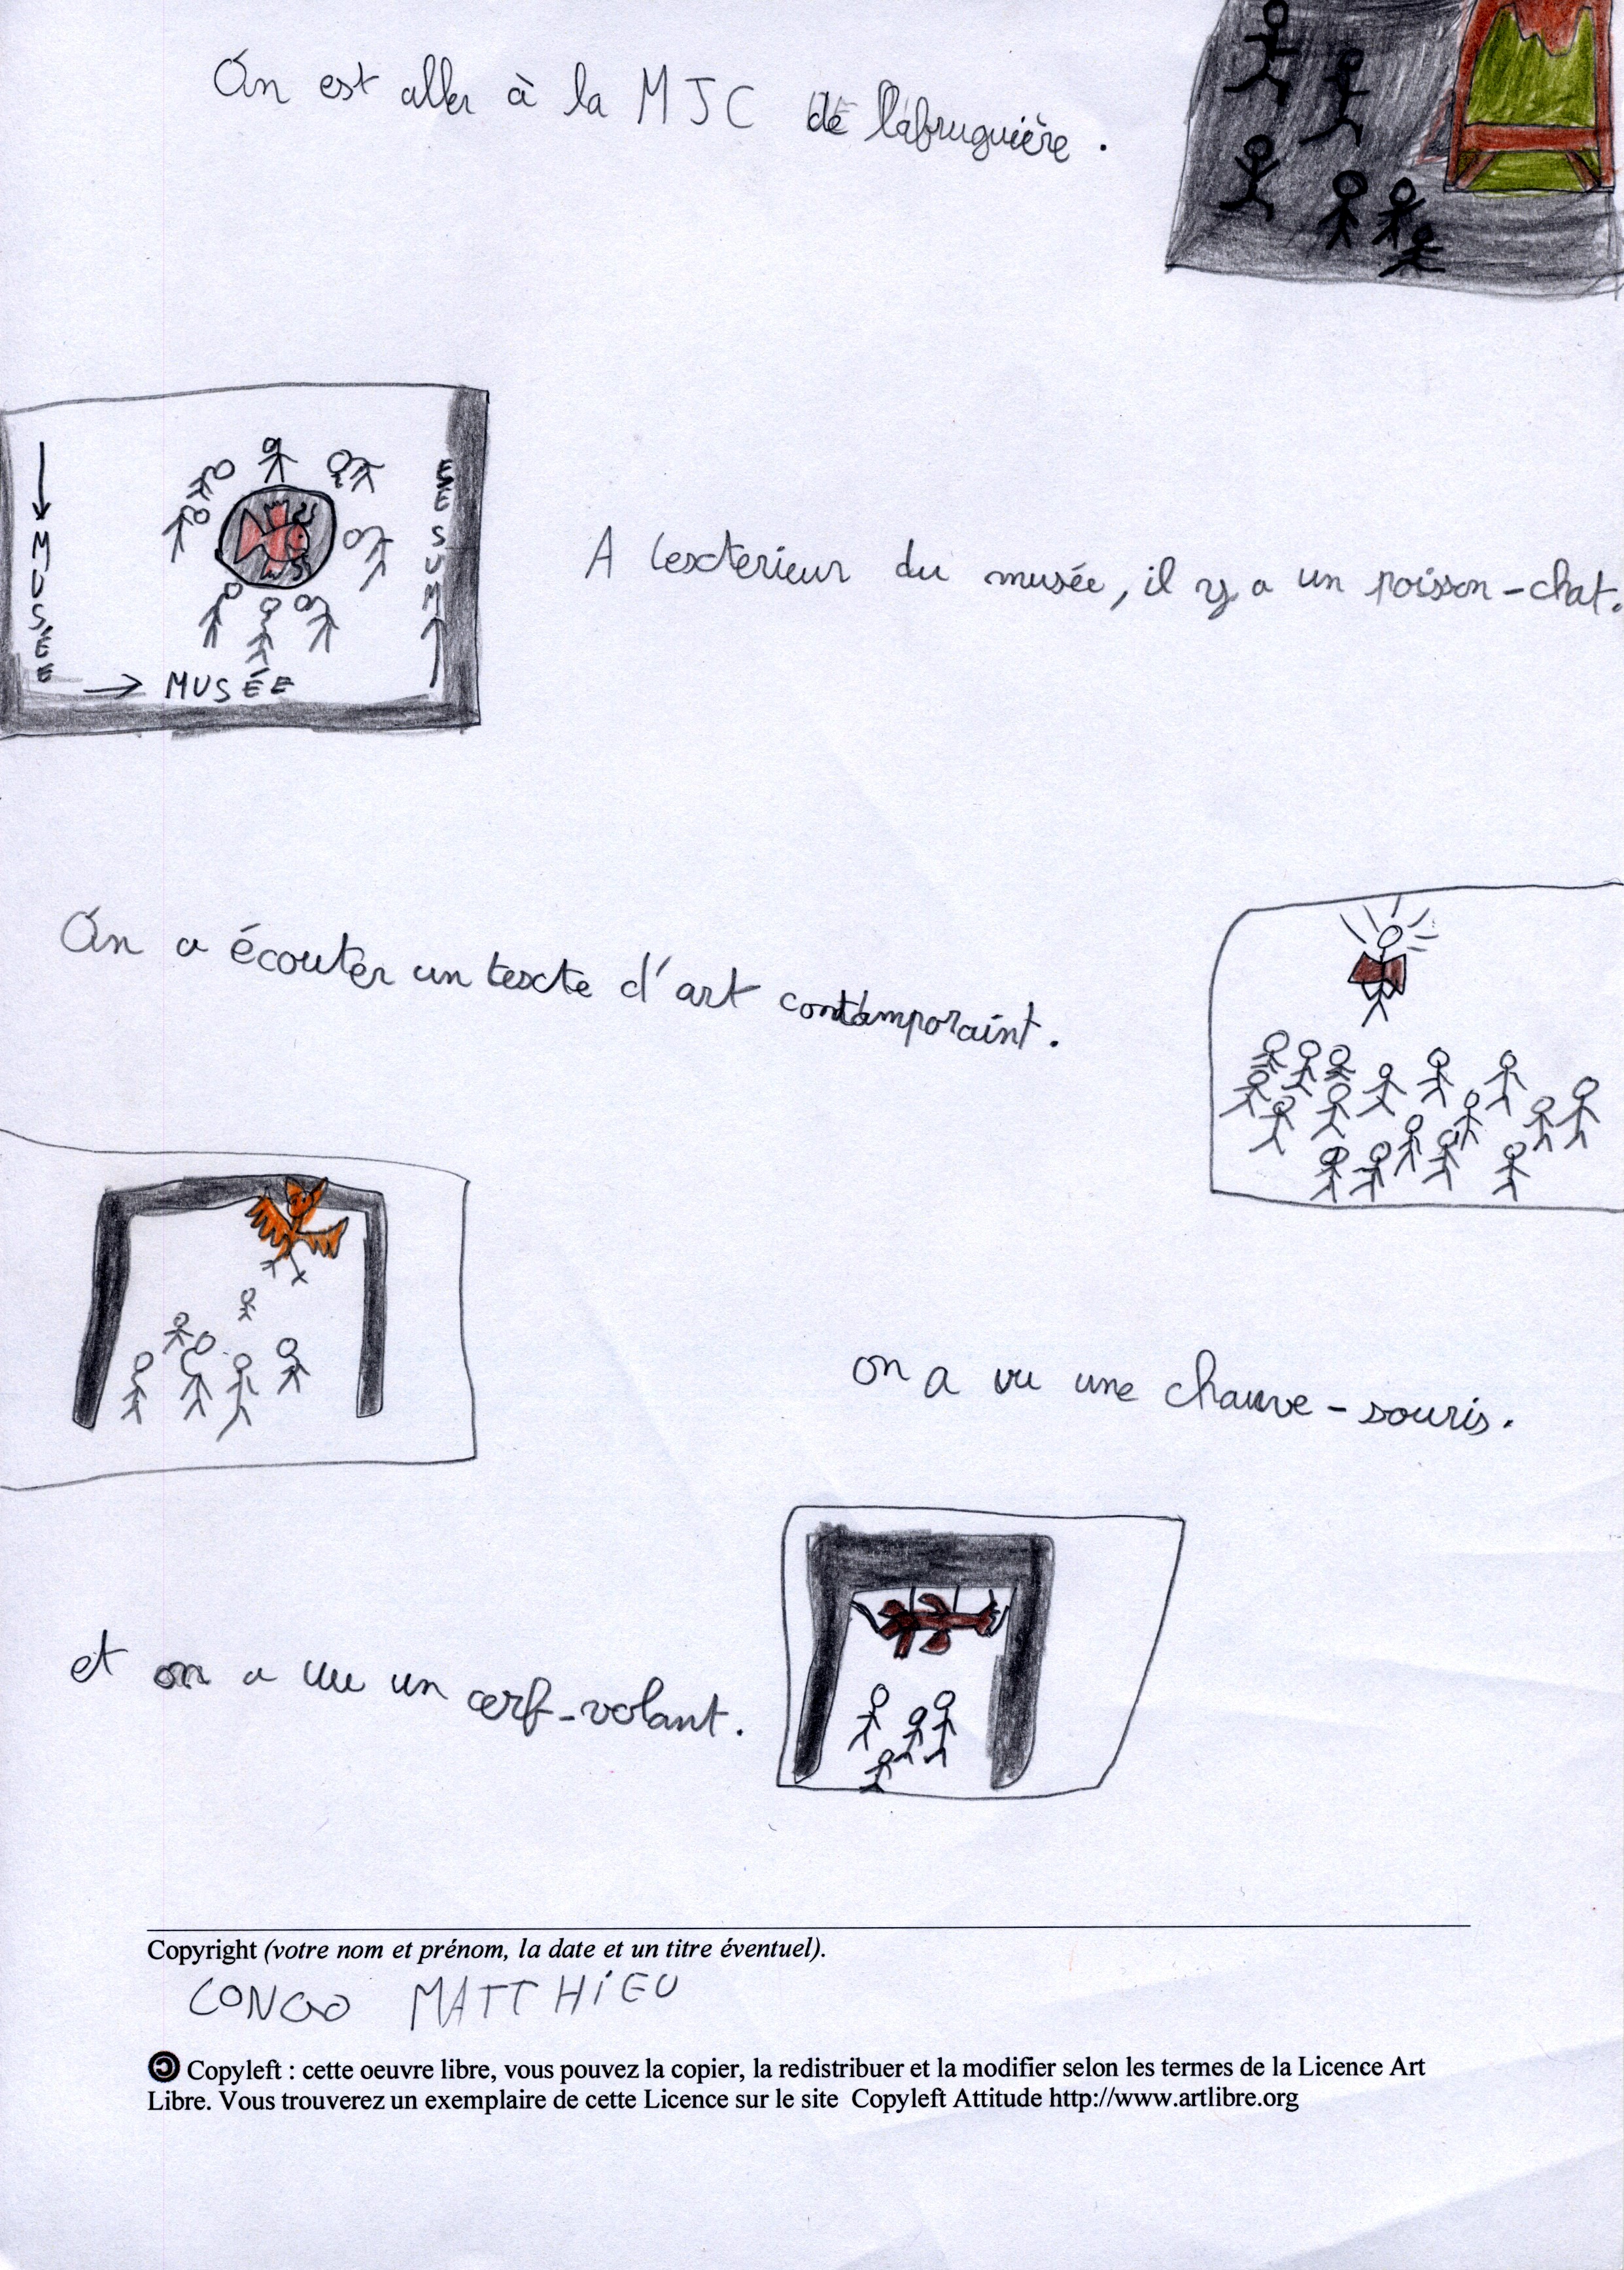 On est aller à la MJC de labruguière.
↓ MUSÉE
→ MUSÉE
↑ MUSÉE
A lexterieur du musée, il y a un poisson-chat.
On a écouter un texcte d'art contamporaint.
on a vu une chauve-souris.
et on a vu un cerf-volant.
Copyright (votre nom et prénom, la date et un titre éventuel).
CONGO MATTHiEU
Copyleft : cette oeuvre libre, vous pouvez la copier, la redistribuer et la modifier selon les termes de la Licence Art
Libre. Vous trouverez un exemplaire de cette Licence sur le site Copyleft Attitude http://www.artlibre.org